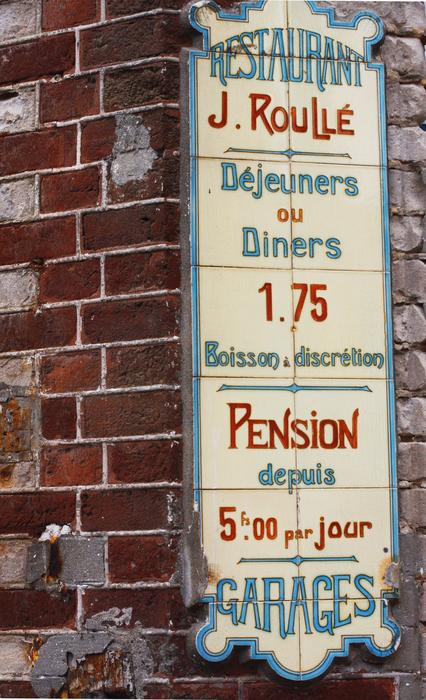 RESTAURANT
J. ROULLÉ
Déjeuners
ou
Diners
1.75
Boisson à discrétion
PENSION
depuis
5fs.00 par jour
GARAGES